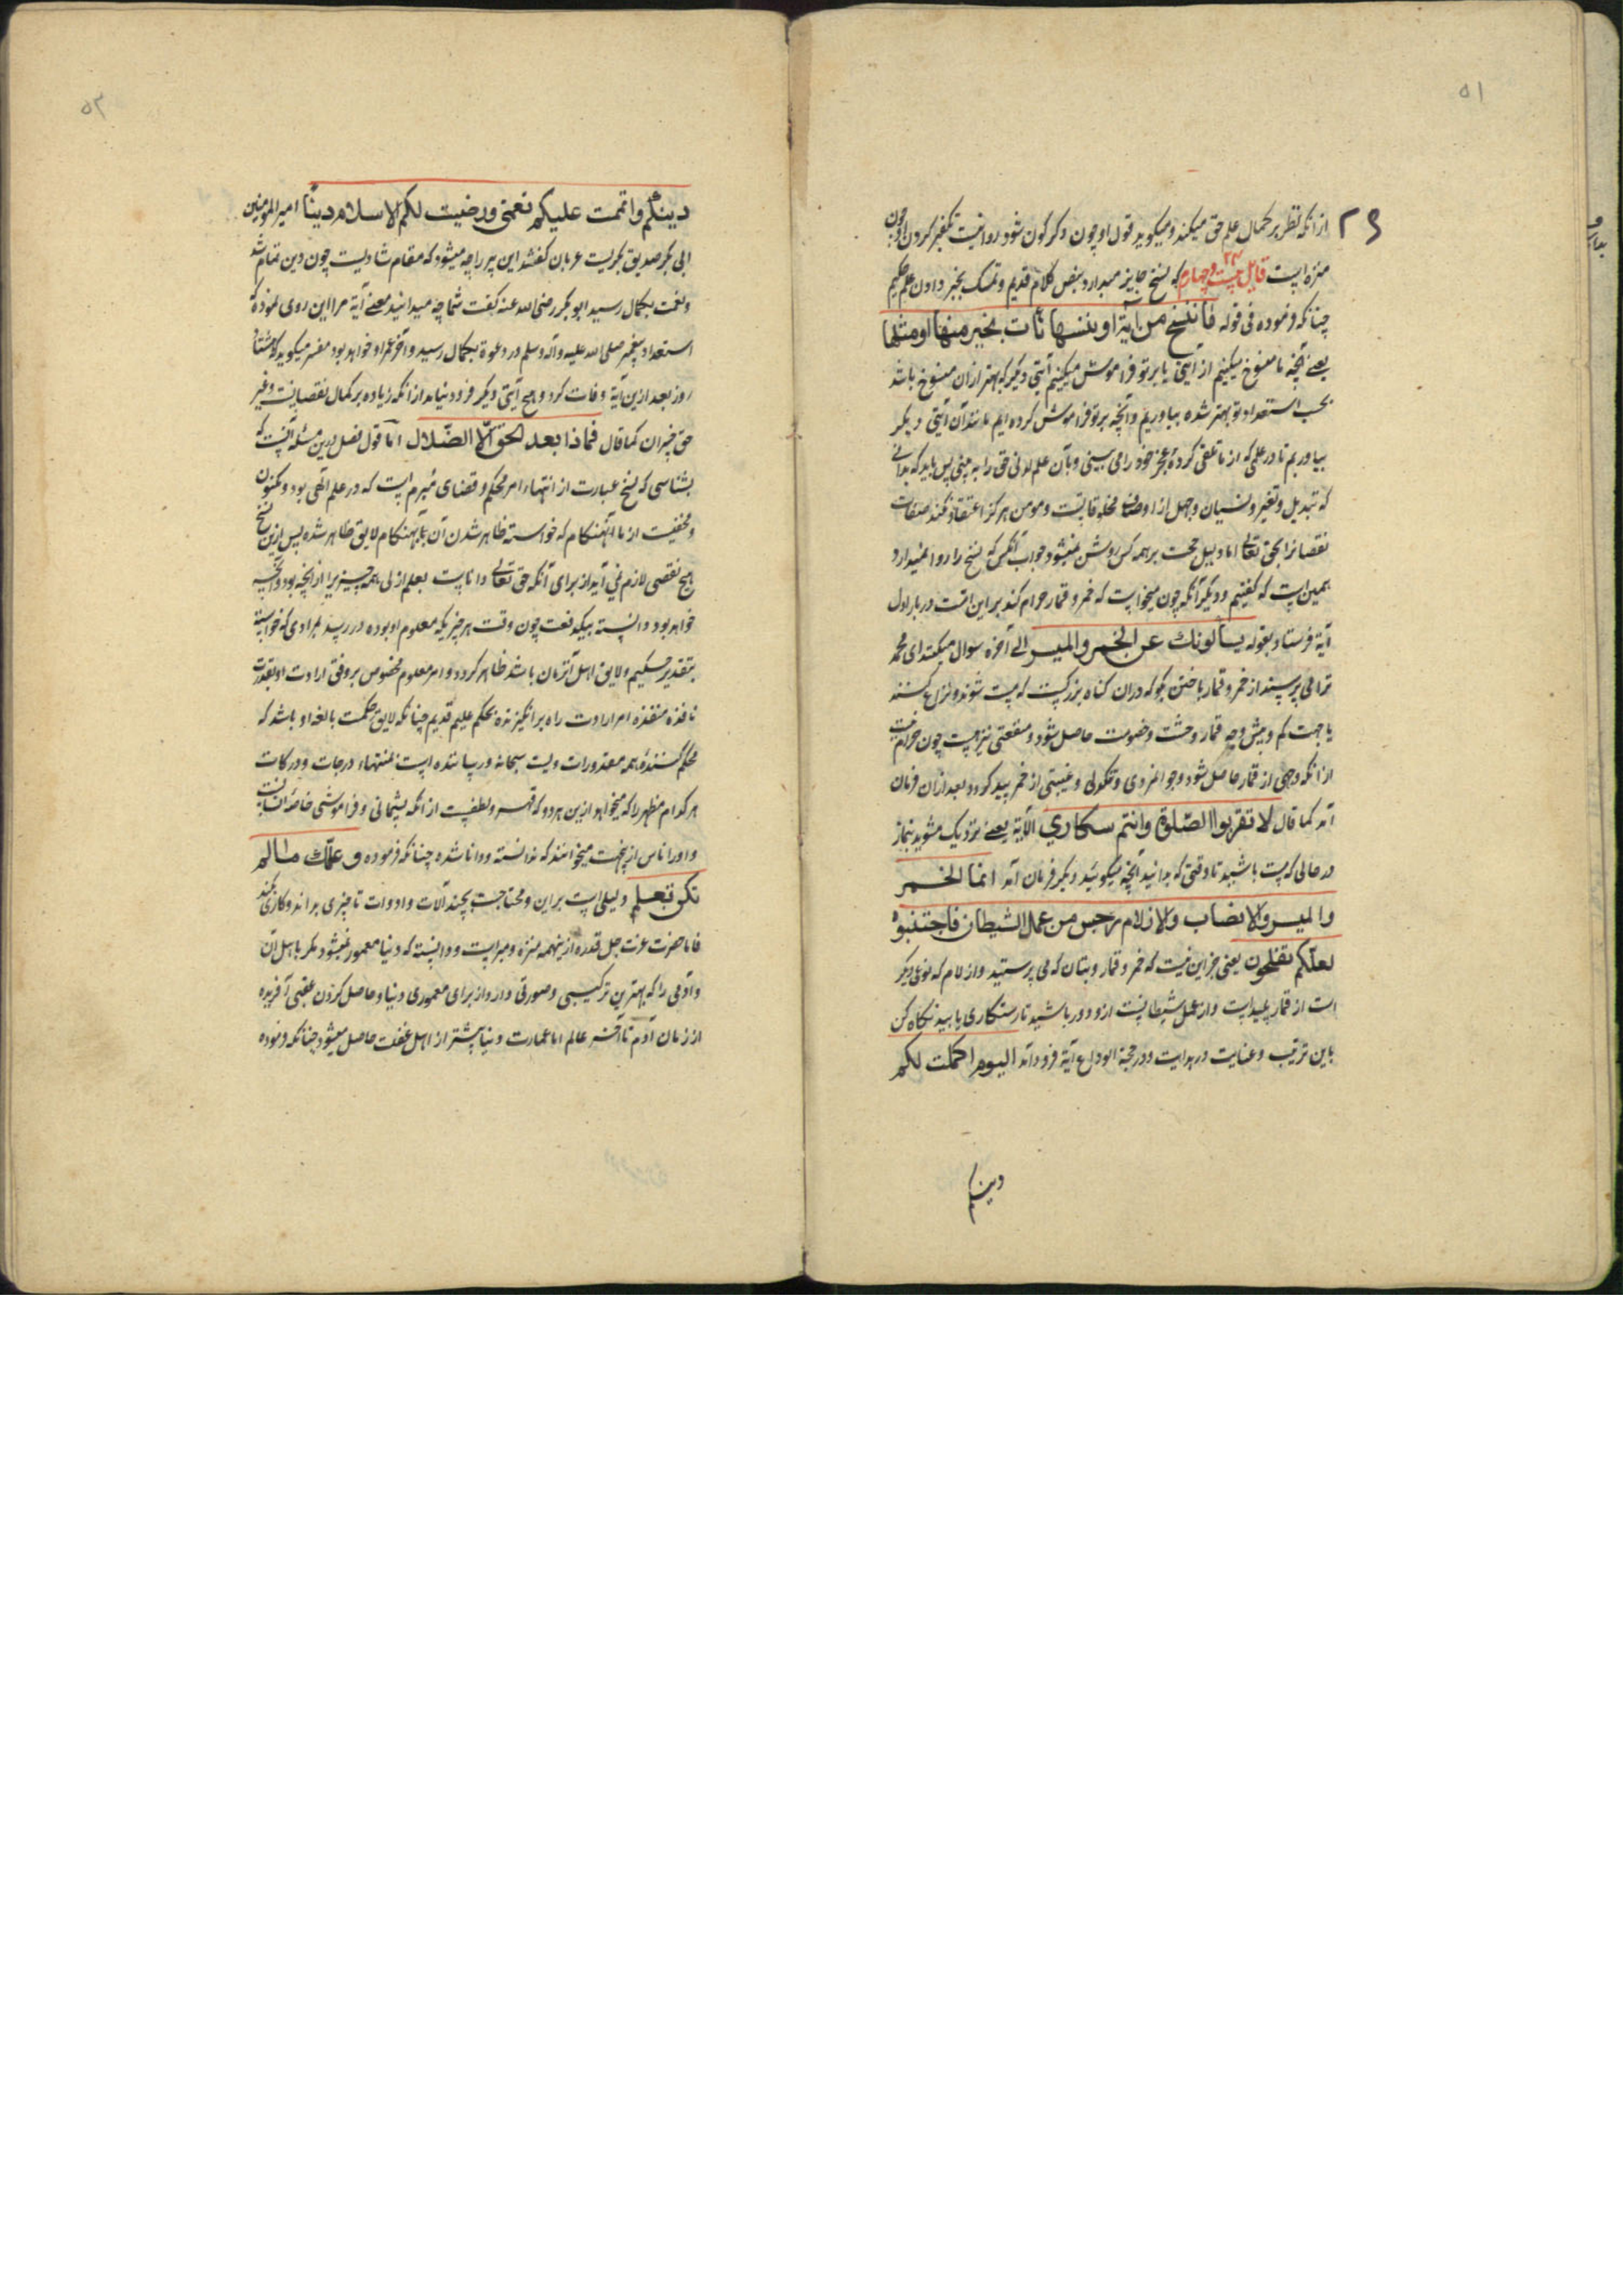 ۵۱
۲۶ از انکه نظر بر کمال علم حق میکند و میکوید قول او چون دکر کون شود روا نیست تکفیر کردن او چون
منزه است قایل بیست و چهارم که نسخ جایز میدارد بنص کلام قدیم و تمسک بخبر دادن علیم حکیم
چنانکه فرموده فی قوله ما ننسخ من آیة او ننسها نأت بخیر منها او مثلها
یعنی آنچه ما منسوخ میکنیم از آیتی یا بر تو فراموش میکنیم آیتی دیکر که بهتر ازان منسوخ باشد
بحسب استعداد تو بهتر شده بیاوریم و آنچه بر تو فراموش کرده ایم مانند آن آیتی دیکر
بیاوریم تا در علمی که از ما تلقی کردهٔ عجز خود را می بینی و بآن علم لدنی حق را به بینی پس باید که بدانی
که تبدیل و تغیر و نسیان و جهل از اوصاف مخلوقاتست و مومن هرکز اعتقاد نکند صفات
نقصانرا بحق تعالی اما دلیل حجت بر همه کس روشن نمیشود جواب آنکس که نسخ را روا نمیدارد
همین است که کفتیم و دیکر آنکه چون میخواست که خمر و قمار حرام کند بر این امت در بار اول
آیة فرستاد بقوله یسألونك عن الخمر والمیسر الی آخره سوال میکنند ای محمد
ترا می پرسند از خمر و قمار باختن بکو که دران کناه بزرکست که مست شوند و نزاع کنند
یا جهت کم و بیش وجه قمار وحشت و خصومت حاصل شود و منفعتی نیز هست چون حرام نیست
از انکه وجهی از قمار حاصل شود و جوانمردی و تکولی و غیبتی از خمر پدید کردد و بعد ازان فرمان
آمد کما قال لا تقربوا الصلوة وانتم سکاری الآیة یعنی نزدیک مشوید بنماز
در حالی که مست باشید تا وقتی که بدانید آنچه میکوئید دیکر فرمان آمد انما الخمر
والمیسر والانصاب والازلام رجس من عمل الشیطان فاجتنبوه
لعلّکم تفلحون یعنی جز این نیست که خمر و قمار و بتان که می پرستید و ازلام که نوعی دیکر
است از قمار پلید است و از عمل شیطانست ازو دور باشید تا رستکاری یابید نکاه کن
باین ترتیب و عنایت در هدایت و در حجة الوداع آیة فرود آمد الیوم اکملت لکم
دینکم
۵۲
دینکم واتممت علیکم نعمتی ورضیت لکم الاسلام دینا امیر المومنین
ابی بکر صدیق بکریست عربان کفتند این پیر را چه میشود که مقام شادیست چون دین تمام شد
و نعمت بکمال رسید ابو بکر رضی الله عنه کفت شما چه میدانید معنی آیة مرا این روی نمود که
استعداد پیغمبر صلی الله علیه وآله وسلم در دعوة بکمال رسید و آخر عمر او خواهد بود مفسر میکوید که هشتاد
روز بعد ازین آیة وفات کرد و هیچ آیتی دیکر فرود نیامد از انکه زیاده بر کمال نقصانست و غیر
حق خسران کما قال فماذا بعد الحق الّا الضّلال اما قول فصل درین مسئله آنست که
بشناسی که نسخ عبارت از انتهاء امر محکم و قضای مبرم است که در علم الهی بود و مکنون
و مخفیست از ما تا آنهنکام که خواسته ظاهر شدن آن بآنهنکام لایق ظاهر شده پس ازین نسخ
هیچ نقصی لازم نمی آید از برای آنکه حق تعالی داناست بعلم ازلی همه چیز را از آنچه بود و آنچه
خواهد بود دانسته بیکدفعت چون وقت هر چیز یکه معلوم او بوده در رسد بمرادی که خواسته
بتقدیر حکیم و لایق اهل آنزمان باشد ظاهر کردد و امر معلوم مخصوص بر وفق ارادت او بقدرت
نافذه منقذه امر ارادت راه برانکیزنده بحکم علیم قدیم چنانکه لایق حکمت بالغه او باشد که
محکم کنندهٔ همه مقدورات ویست سبحانه و رساننده است بمنتهاء درجات و درکات
هر کدام مظهر را که میخواهد ازین هر دو که قهر و لطفست از انکه پشیمانی و فراموشی خاصهٔ انسانست
و او را ناس ازینجهت میخوانند که ندانسته و دانا شده چنانکه فرموده وعلّمك ما لم
تکن تعلم دلیلی است بر این و محتاجست بچند آلات و ادوات تا چیزی بداند و کاری کند
فاما حضرت عزت جل قدره ازینهمه منزه و مبراست و دانسته که دنیا معمور نمیشود مکر باهل آن
و آدمی را که بهترین ترکیبی و صورتی دارد از برای معموری دنیا و حاصل کردن عقبی آفریده
از زمان آدم تا آخر عالم اما عمارت دنیا بیشتر از اهل غفلت حاصل میشود چنانکه فرموده